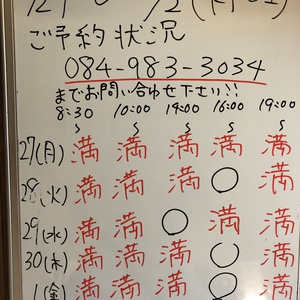 ご予約状況
084-983-3034
までお問い合わせ下さい!!
8:30 10:00 14:00 16:00 19:00
~ ~ ~ ~ ~
27(月) 満 満 満 満 満
28(火) 満 満 満 ○ 満
29(水) 満 満 ○ 満 満
30(木) 満 満 満 ○ 満
1(金) 満 満 満 ○ 満